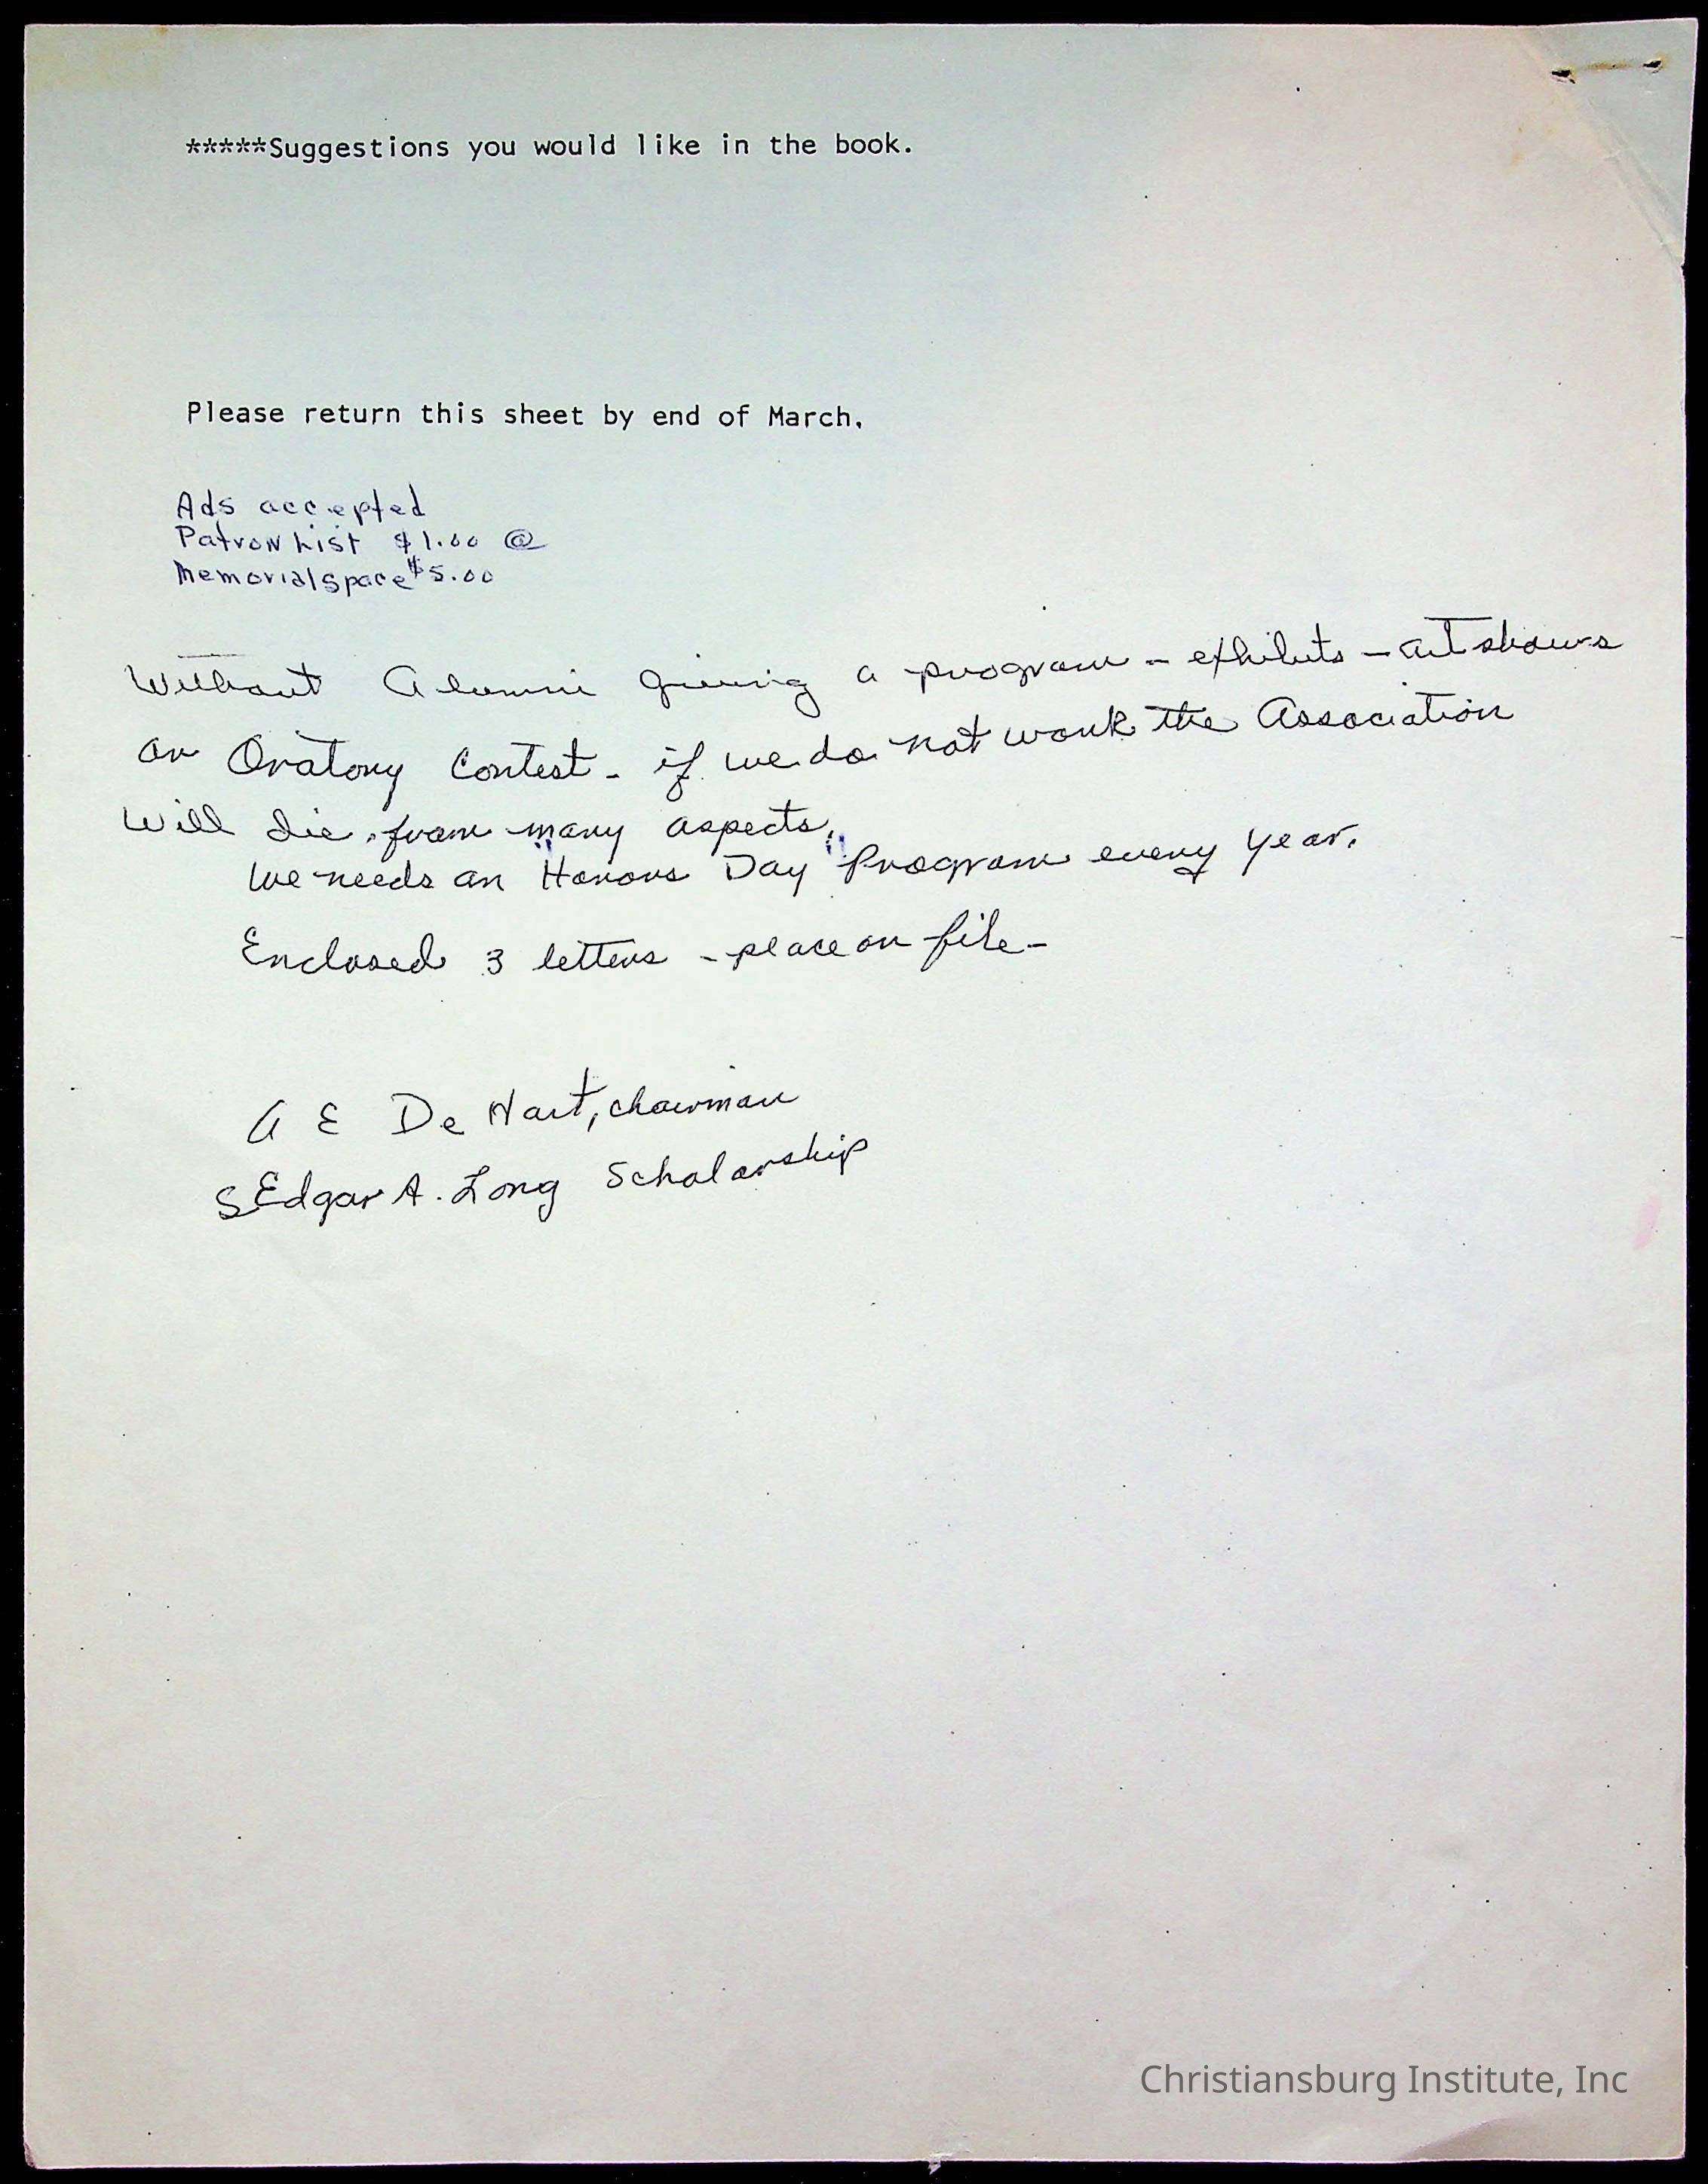 *****Suggestions you would like in the book.
Please return this sheet by end of March.
Ads accepted
Patron List $1.00 @
Memorial space $5.00
Without Alumni giving a program - exhibits - art shows
or Oratory Contest - if we do not work the Association
will die from many aspects.
We needs an "Honors Day" Program every year.
Enclosed 3 letters - place on file -
A E De Hart, chairman
S Edgar A. Long Scholarship
Christiansburg Institute, Inc